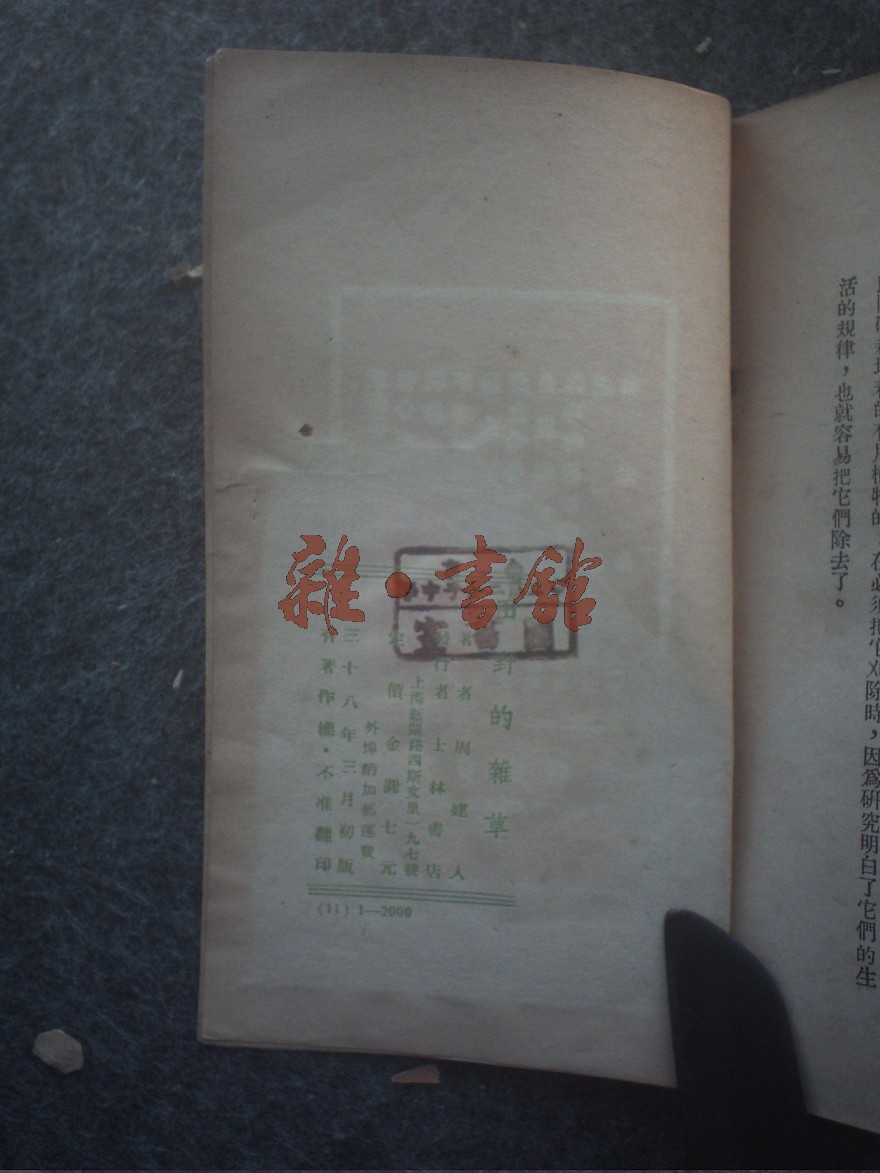 活的規律，也就容易把它們除去了。
在必須把它刈除時，因爲研究明白了它們的生
田野的雜草
著者 周建人
發行者 士林書店
上海新閘路西斯文里一九七號
定價 金圓七元
外埠酌加郵運費
三十八年三月初版
有著作權·不准翻印
(11) 1—2000
雜·書館